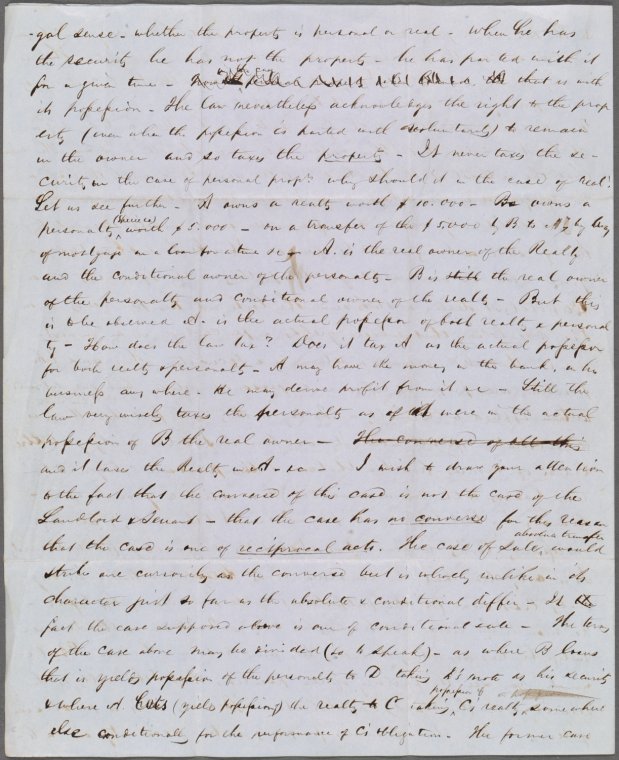 -gal sense - whether the property is personal or real - When he has
the security he has not the property - he has parted with it
for a given time - that is with
its possession - The law nevertheless acknowledges the right to the prop
erty (even when the possession is parted with voluntarily) to remain
in the owner and so taxes the property - It never taxes the se-
curity in the case of personal propy why should it in the case of real?
Let us see further - A owns a realty worth $10.000 - B owns a
personalty (specie) worth $5.000 - on a transfer of the $5.000 by B to A by way
of mortgage on a loan for a time &c - A. is the real owner of the Realty
and the conditional owner of the personalty - B is still the real owner
of the personalty and conditional owner of the realty - But this
is to be observed A. is the actual possessor of both realty & personal
ty - How does the law tax? Does it tax A as the actual possessor
for both realty & personalty - A may have the money in the bank, in his
business any where. He may derive profit from it &c - Still the
law very wisely taxes the personalty as if it were in the actual
possession of B the real owner - The converse of all this
and it taxes the Realty in A - so - I wish to draw your attention
to the fact that the converse of this case is not the case of the
Landlord & Tenant - that the case has no converse for this reason
that the case is one of reciprocal acts. The case of Sale, absolute transfer would
strike one curiously as the converse but is wholly unlike in its
character just so far as the absolute & conditional differ - In
fact the case supposed above is one of conditional sale - The terms
of the case above may be divided (so to speak) - as where B loans
that is yields possession of the personalty to D taking D's note as his security
& where A. Lets (yields possession) the realty to C taking possession of C's realty somewhere
else conditionally for the performance of C's obligation - The former case